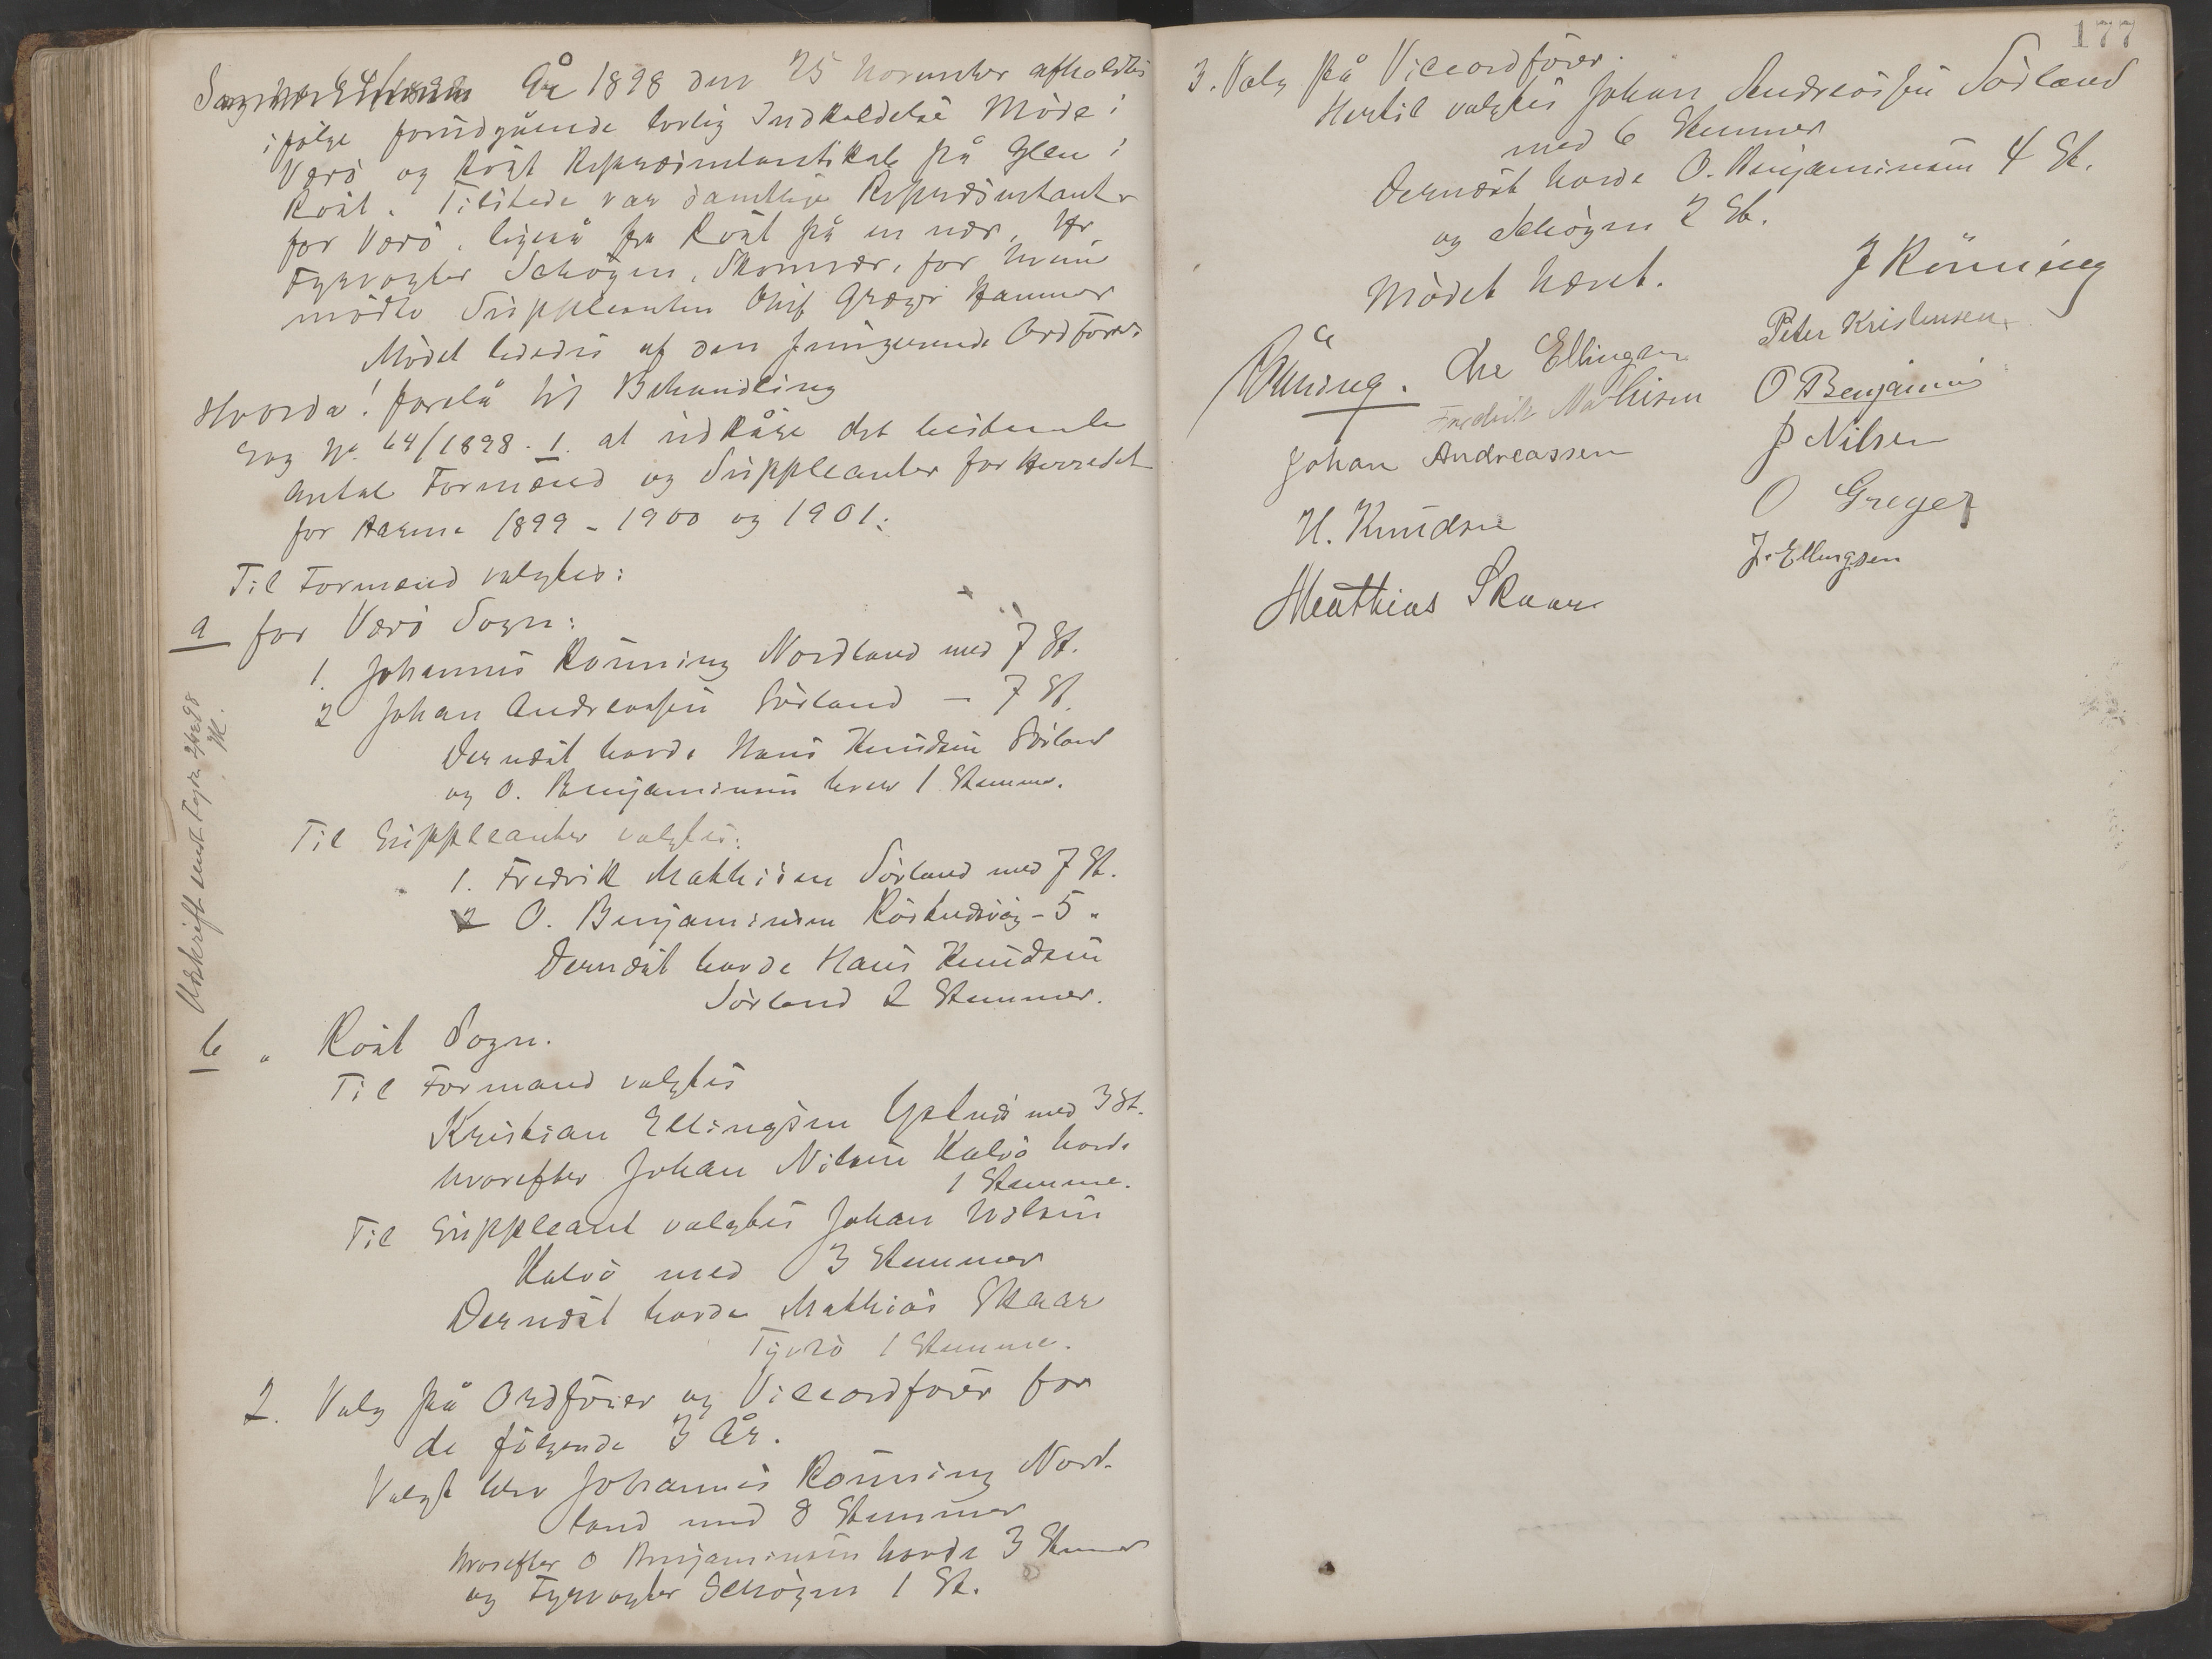 År 1898 den 25 November afholdtes
ifølge forudgående lovlig Indkaldelse Møde i
Værö og Röst Repræsentantskab på Glea i
Röst. Tilstede var samtlige Repræsentanter
for Værö, ligeså fra Röst på en nær, Hr
Fyrvogter Schøgen, Skomvær, for hvem
mødte Suppleanten Oluf Græger Hammer
Mødet lededes af den fungerende Ordförer
Hvorda! forelå til Behandling
Sag No. 64/1898. 1. at udkåre det bestemte
Antal Formænd og Suppleanter for Herredet
for Aarene 1899 - 1900 og 1901:
Til Formænd valgtes:
a for Værö Sogn:
1. Johannes Rönning Nordland med 7 St.
2 Johan Andreassen Sörland — 7 St.
Dernæst havde Hans Knudsen Sörland
og O. Benjaminsen hver 1 Stemme.
Til Suppleanter valgtes:
1. Fredrik Mathisen Sörland med 7 St.
2 O. Benjaminsen Röstnesvåg - 5 "
Dernæst havde Hans Knudsen
Sörland 2 Stemmer.
b " Röst Sogn.
Til Formand valgtes
Kristian Ellingsen Ystnes med 3 St.
hvorefter Johan Nilsen Kalvö havde
1 Stemme.
Til Suppleant valgtes Johan Nilsen
Kalvö med 3 Stemmer
Dernæst havde Mathias Skaar
Tyvsö 1 Stemme.
2. Valg på Ordförer og Viceordförer for
de fölgende 3 År.
Valgt blev Johannes Rönning Nord-
land med 8 Stemmer
hvorefter O Benjaminsen havde 3 Stemmer
og Fyrvogter Schøgen 1 St.
Udskrift sendt Fogden
177
3. Valg på Viceordförer.
Hertil valgtes Johan Andreassen Sörland
med 6 Stemmer
Dernæst havde O. Benjaminsen 4 St.
og Schøgen 2 St.
Mødet hævet.
J Rönning
Chr Ellingsen
Peter Kristensen
Fredrik Mathisen
O Benjamins
Johan Andreassen
J Nilsen
H. Knudsen
O Greger
J. Ellingsen
Matthias Skaar